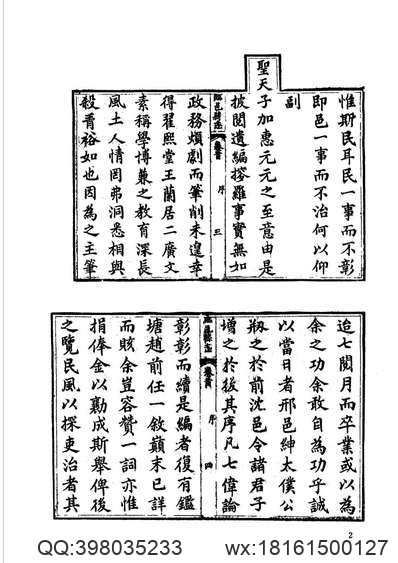 惟斯民耳民一事而不彰
即邑一事而不治何以仰
副
聖天子加惠元元之至意由是
披閱遺編搜羅事實無如
臨邑縣志 卷首 序 三
政務煩劇而筆削未遑幸
得翟熙堂王蘭居二廣文
素稱學博兼之教育深長
風土人情罔弗洞悉相與
殺青裕如也因為之主筆
迨七閱月而卒業或以為
余之功余敢自為功乎誠
以當日者邢邑紳太僕公
剏之於前沈邑令諸君子
增之於後其序凡七偉論
臨邑縣志 卷首 序 四
彰彰而續是編者復有鑑
塘趙前任一敘顛末已詳
而賅余豈容贊一詞亦惟
捐俸金以勷成斯舉俾後
之覽民風以採吏治者其
2
QQ:398035233 wx:18161500127